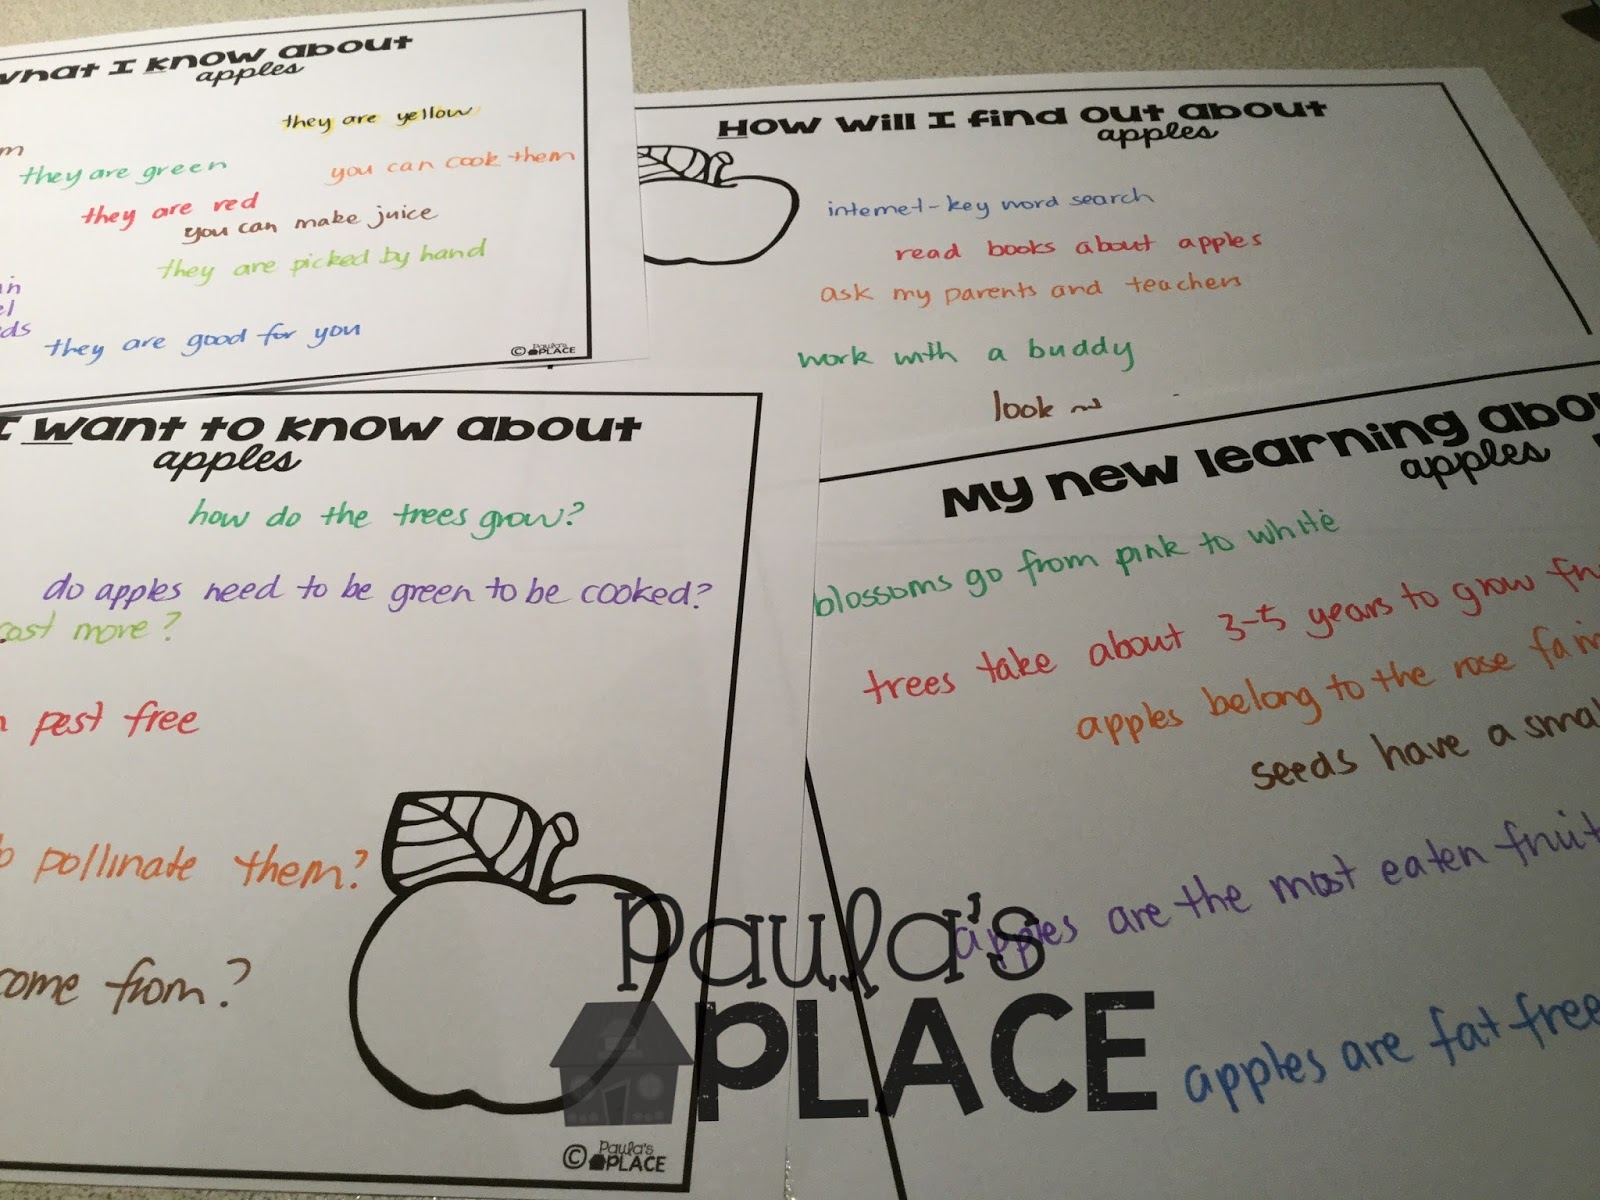 What I know about
apples
they are yellow
they are green
you can cook them
they are red
you can make juice
they are picked by hand
they are good for you
© Paula's PLACE
How will I find out about
apples
internet-key word search
read books about apples
ask my parents and teachers
work with a buddy
look
I want to know about
apples
how do the trees grow?
do apples need to be green to be cooked?
more?
pest free
pollinate them?
come from?
© Paula's
PLACE
My new learning
apples
blossoms go from pink to white
trees take about 3-5 years to grow
apples belong to the rose
seeds have a
apples are the most eaten fruit
apples are fat free
Paula's
PLACE